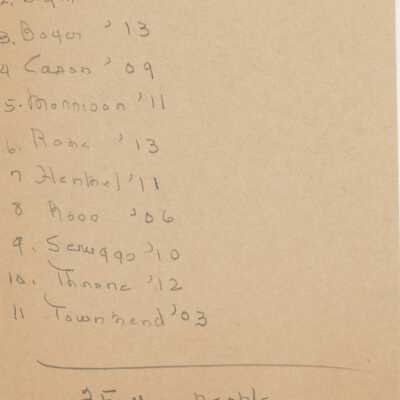 3. Boger '13
4 Cason '09
5. Morrison '11
6. Rone '13
7 Henkel '11
8 Ross '06
9. Scruggs '10
10. Throne '12
11 Townsend '03
people